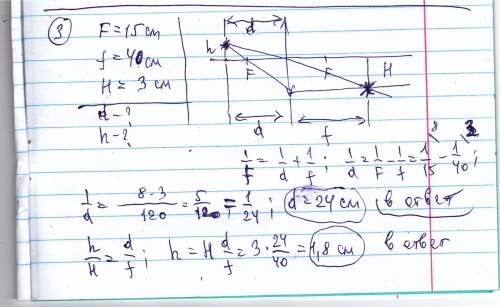 ③ F = 15 см
f = 40 см
H = 3 см
d - ?
h - ?
d
h
F
F
H
d
f
1/F = 1/d + 1/f ; 1/d = 1/F - 1/f = 1/15 - 1/40 ;
8 3
1/d = (8-3)/120 = 5/120 = 1/24 ; d = 24 см в ответ
h/H = d/f ; h = H d/f = 3 · 24/40 = 1,8 см в ответ